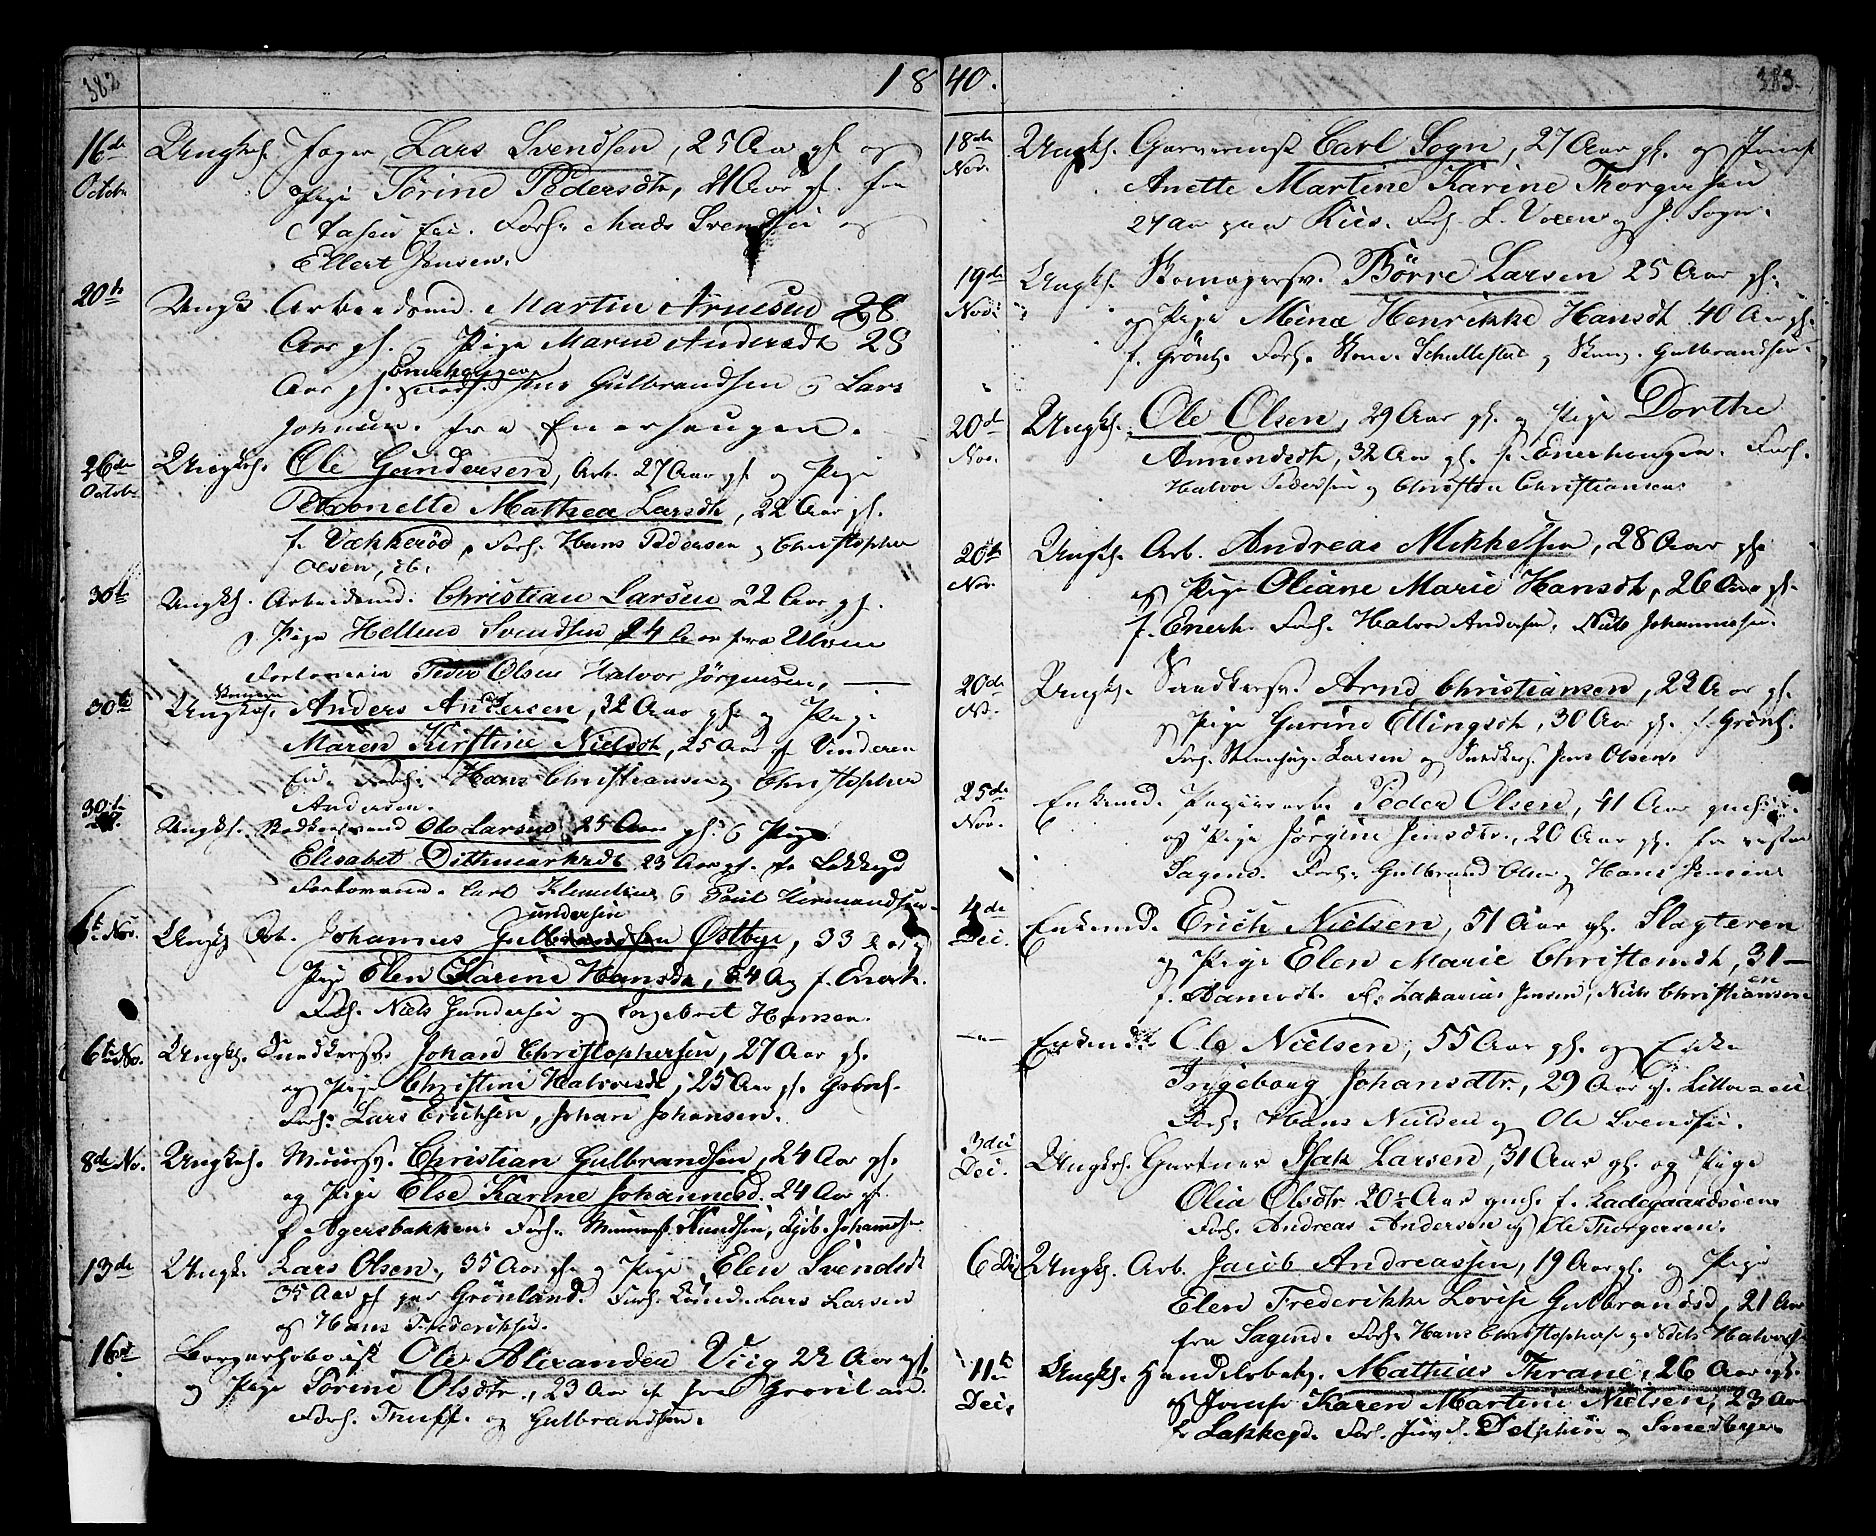 382
18
16de Octobr Ungk. Jæger Lars Svendsen, 25 Aar gl. og
Pige Sörine Pedersdtr, 21 Aar gl. fra
Aasen Eie. Forl. Mads Svendsen og
Ellert Jensen.
20de Ungk Arbeidsmd. Martin Arnesen 28
Aar gl. og Pige Maren Andersdt 28
Enerhougen
Aar gl. Forl. Gulbrandsen og Lars
Johnsen. fra Enerhaugen.
26de Octobr Ungk. Ole Gundersen, Arb. 27 Aar gl. og Pige
Petronelle Mathea Larsdtr, 22 Aar gl.
f. Vækkeröd. Forl. Hans Pedersen og Christopher
Olsen, ib.
30te Ungk. Arbeidsmd. Christian Larsen 22 Aar gl.
og Pige Hellene Svendsen 24 Aar fra Ulven
Forlovere Peder Olsen Halvor Jörgensen.
30te Ungk. Anders Andersen, 22 Aar gl. og Pige
Maren Kirstine Nielsdt, 25 Aar gl. Vinderen
Eie. Forl. Hans Christiansen og Christopher
Andersen.
30te Ungk. Ole Larsen 25 Aar gl. og Pige
Elisabet Dittmarhsdt 23 Aar gl. fra Lakkegd
Forlovere. Carl og Poul Hermandsen
undersen
Nov. Ungk. Arb. Johannes Gulbrandsen Östbye, 33 Aar og
Pige Elen Karine Hansdtr, 24 A f. Enerh.
Forl. Niels Gundersen og Torgebret Hansen.
6te No. Ungk. Snedkersv. Johan Christophersen, 27 Aar gl.
og Pige Christine Halvorsdt, 25 Aar gl. Grönl.
Forl. Lars Erichsen, Johan Johansen.
8de No. Ungk. Muursv. Christian Gulbrandsen, 24 Aar gl.
og Pige Else Karine Johannesd. 24 Aar gl.
f Agersbakken. Forl. Knudsen, Johannesen
13de Ungk. Lars Olsen, 35 Aar gl. og Pige Elen Svendsdt
35 Aar gl paa Grönland. Forl. Lars Larsen
og Hans Frederiksen.
16de Ole Alexander Viig 22 Aar gl.
og Pige Sörine Olsdtr., 23 Aar gl fra Grönland
Forl. Truff. og Gulbrandsen.
40.
383.
18de Nov. Ungk. Garversvend Carl Sogn, 27 Aar gl. og
Anette Martine Karine Thorgersen
27 Aar paa Forl. L. og J. Sogn.
19de Nov. Ungk. Skomagersv. Börre Larsen 25 Aar gl.
og Pige Mina Henrikke Hansdt 40 Aar gl.
f. Grönl. Forl. Skom. og Gulbrandsen
20de Nov. Ungk. Ole Olsen, 29 Aar gl. og Pige Dorthe
Amundsdt, 32 Aar gl. f. Enerhougen. Forl.
Halvor Pedersen og Christen Christiansen
20de Nov. Ungk. Arb. Andreas Mikkelsen, 28 Aar gl.
og Pige Oliane Marie Hansdt, 26 Aar gl.
f. Enerh. Forl. Halvor Andersen, Niels Johannesen.
20de N. Ungk. Snedkersv. Arnd Christiansen, 22 Aar gl.
og Pige Gurine Ellingsdt, 30 Aar gl. f. Grönl.
Forl. Larsen og Snedkers. Jens Olsen.
25de Nov. Enkemd. Peder Olsen, 41 Aar gml
og Pige Jörgine Jensdtr., 20 Aar gl. fra
Sagene. Forl. Gulbrand Olsen og Hans Jensen
4de Dec. Enkemd. Erich Nielsen, 51 Aar gl. Slagteren
og Pige Elen Marie Christensdt, 31 —
f. F. Zakarias Jensen, Niels Christiansen
— Enkemd. Ole Nielsen, 55 Aar gl. og Enke
Ingeborg Johansdtr., 29 Aar gl.
Forl. Hans Nielsen og Ole Svendsen.
3die Dec. Ungk. Gartner Isak Larsen, 31 Aar gl. og Pige
Olia Olsdtr 20½ Aar gml. f. Ladegaardsöen
Forl. Andreas Andersen og Ole Thorgersen.
6 De Ungk. Arb. Jacob Andreassen, 19 Aar gl. og Pige
Elen Frederikke Lovise Gulbrandsd, 21 Aar
fra Sagene. Forl. Hans Christophers. og Niels Halvors.
11te Dec. Ungk. Handelsbetj. Mathias Thrane, 26 Aar gl.
og Jomfr. Karen Martine Nielsen, 23 Aar
fr Lakkegd. Forl. Delphin og Smedbye